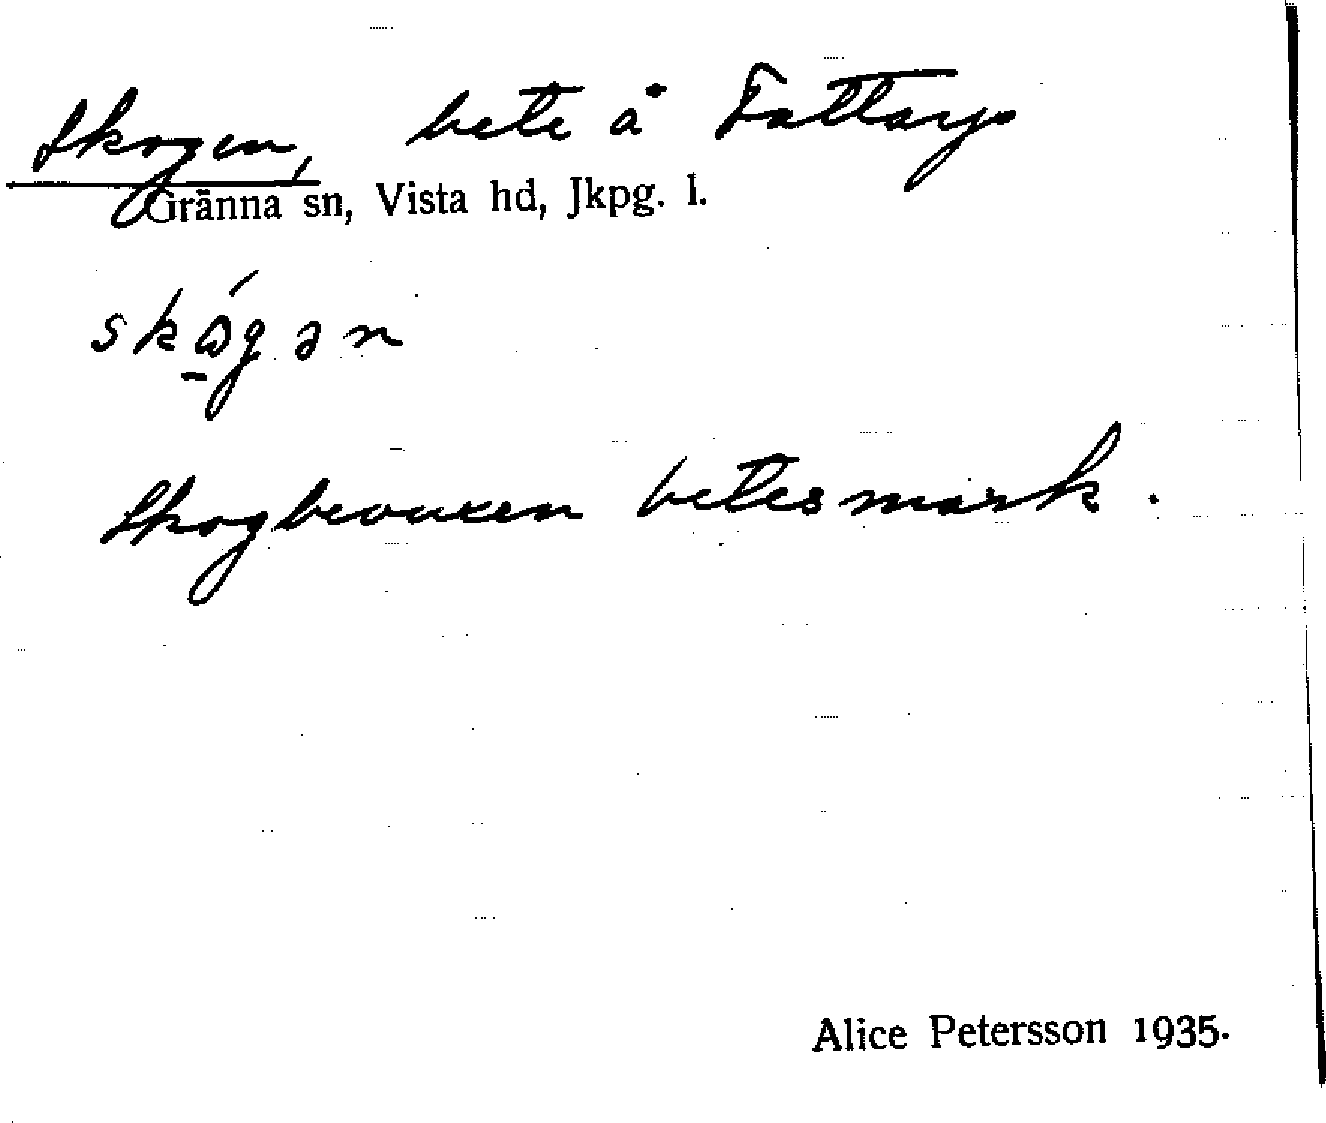 Skogen, bete å Fattarp
Gränna sn, Vista hd, Jkpg. l.
skɷ́gən
Skogbevuxen betesmark.
Alice Petersson 1935.